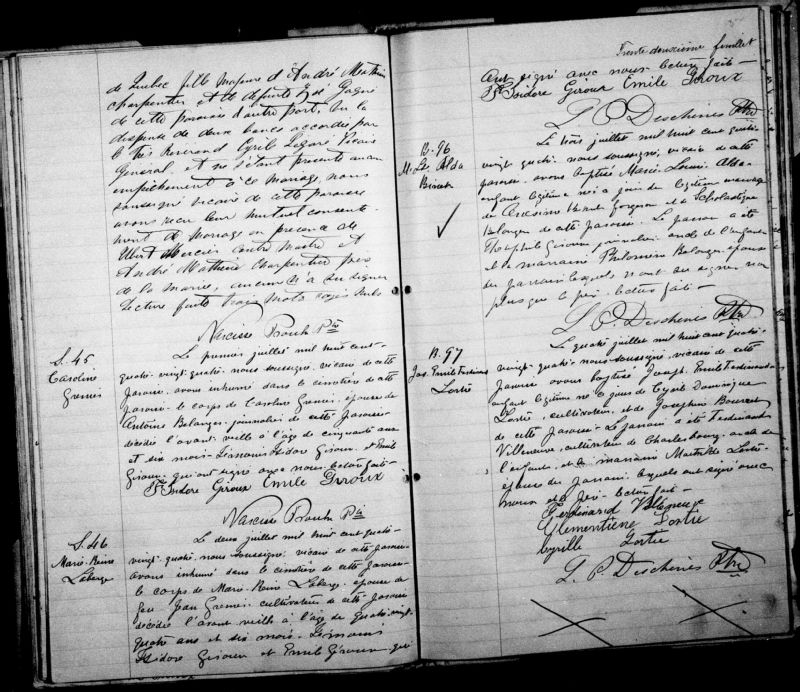 de Québec fille majeure d'André Mathieu
charpentier et de défunte Zoé Gagné
de cette paroisse d'autre part. Vu la
dispense de deux bans accordée par
le Très Révérend Cyrille Légaré Vicaire
Général, et ne s'étant présenté aucun
empêchement à ce mariage, nous
soussigné vicaire de cette paroisse
avons reçu leur mutuel consente-
ment de mariage en présence de
Mercier contre maître et
André Mathieu charpentier père
de la mariée, qui n'a su signer
Lecture faite trois mots rayés nuls
Narcisse Proulx Ptre
S. 45
Caroline
Grenier
Le premier juillet mil huit cent-
quatre-vingt-quatre nous soussigné, vicaire de cette
paroisse, avons inhumé dans le cimetière de cette
paroisse le corps de Caroline Grenier, épouse de
Antoine Bélanger, journalier de cette paroisse
décédée l'avant veille à l'âge de cinquante ans
et six mois. Témoins Isidore Giroux et Emile
Giroux qui ont signé avec nous. Lecture faite -
Isidore Giroux Emile Giroux
Narcisse Proulx Ptre
S. 46
Marie-Reine
Laberge
Le deux juillet mil huit cent quatre-
vingt-quatre, nous soussigné vicaire de cette paroisse
avons inhumé dans le cimetière de cette paroisse
le corps de Marie Reine Laberge, épouse de
feu Jean Grenier, cultivateur de cette paroisse
décédée l'avant veille à l'âge de quatre vingt
quatre ans et six mois. Témoins
Isidore Giroux et Emile Giroux, qui
Trente deuxième feuillet
ont signé avec nous. Lecture faite -
Isidore Giroux Emile Giroux
L P Deschenes Ptre
B. 96
M. Ls. Alda
Binet
Le trois juillet mil huit cent quatre-
vingt quatre nous soussigné, vicaire de cette
paroisse, avons baptisé Marie Louise Alda
enfant légitime née de légitime mariage
de Binet forgeron et de Scholastique
Bélanger de cette paroisse. Le parrain a été
Théophile Giroux journalier oncle de l'enfant
et la marraine Philomène Bélanger épouse
du parrain lesquels n'ont su signer non
plus que le père. Lecture faite -
L P Deschenes Ptre
B. 97
Jos. Emile Ferdinand
Lortie
Le quatre juillet mil huit cent quatre-
vingt-quatre nous soussigné, vicaire de cette
paroisse avons baptisé Joseph Emile Ferdinand
enfant légitime né de Cyrille Dominique
Lortie, cultivateur, et de Joséphine Bourret
de cette paroisse. Le parrain a été Ferdinand
Villeneuve, cultivateur de Charlesbourg, oncle de
l'enfant, et la marraine Mathilde Lortie
épouse du parrain, lesquels ont signé avec
nous et le père. Lecture faite -
Ferdinand Villeneuve
Clementiene Lortie
Cyrille Lortie
L. P Deschenes Ptre